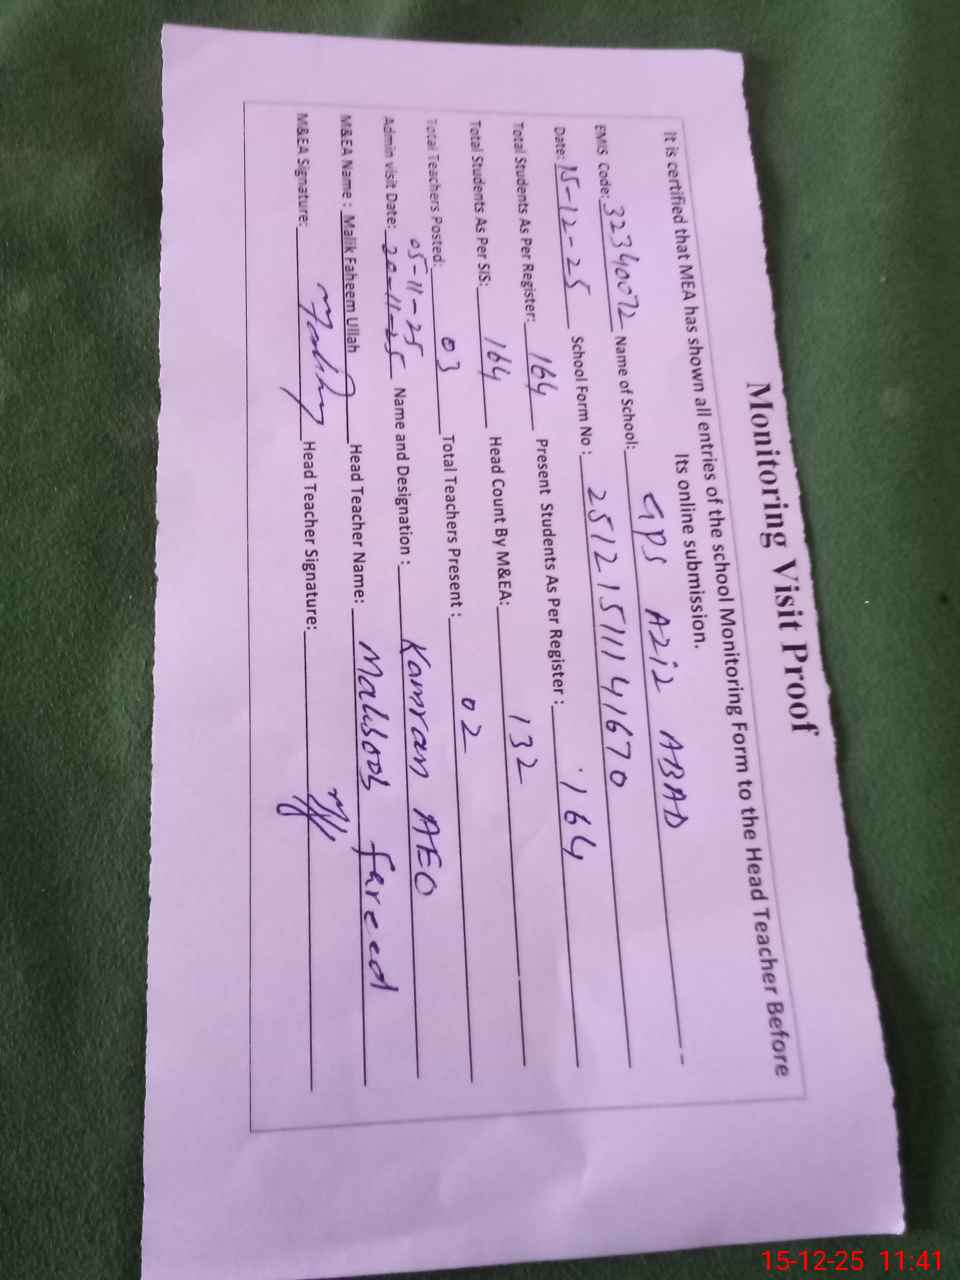 Monitoring Visit Proof
It is certified that MEA has shown all entries of the school Monitoring Form to the Head Teacher Before
Its online submission.
EMIS Code: 32340072 Name of School: GPS AZiZ ABAD
Date: 15-12-25 School Form No : 251215111141670
Total Students As Per Register: 164 Present Students As Per Register : 164
Total Students As Per SIS: 164 Head Count By M&EA: 132
Total Teachers Posted: 03 Total Teachers Present : 02
05-11-25
Admin visit Date: 20-11-25 Name and Designation : Kamran AEO
M&EA Name : Malik Faheem Ullah Head Teacher Name: Mahboob fareed
M&EA Signature: Head Teacher Signature:
15-12-25 11:41